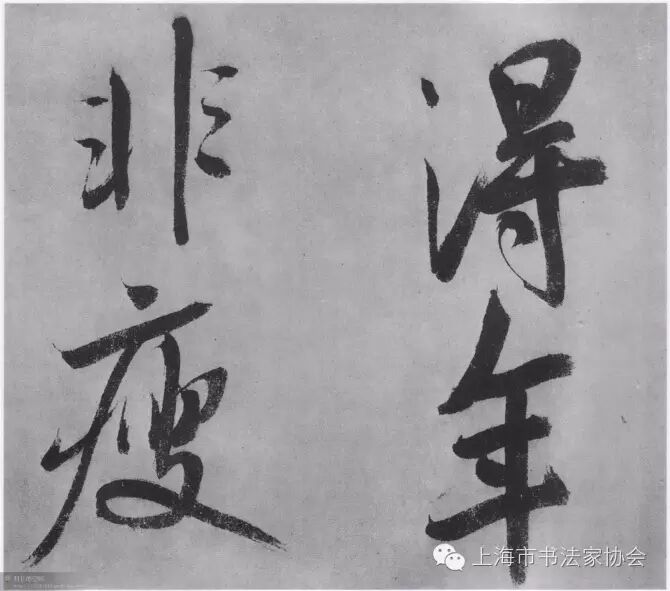 得年
非瘦
上海市书法家协会